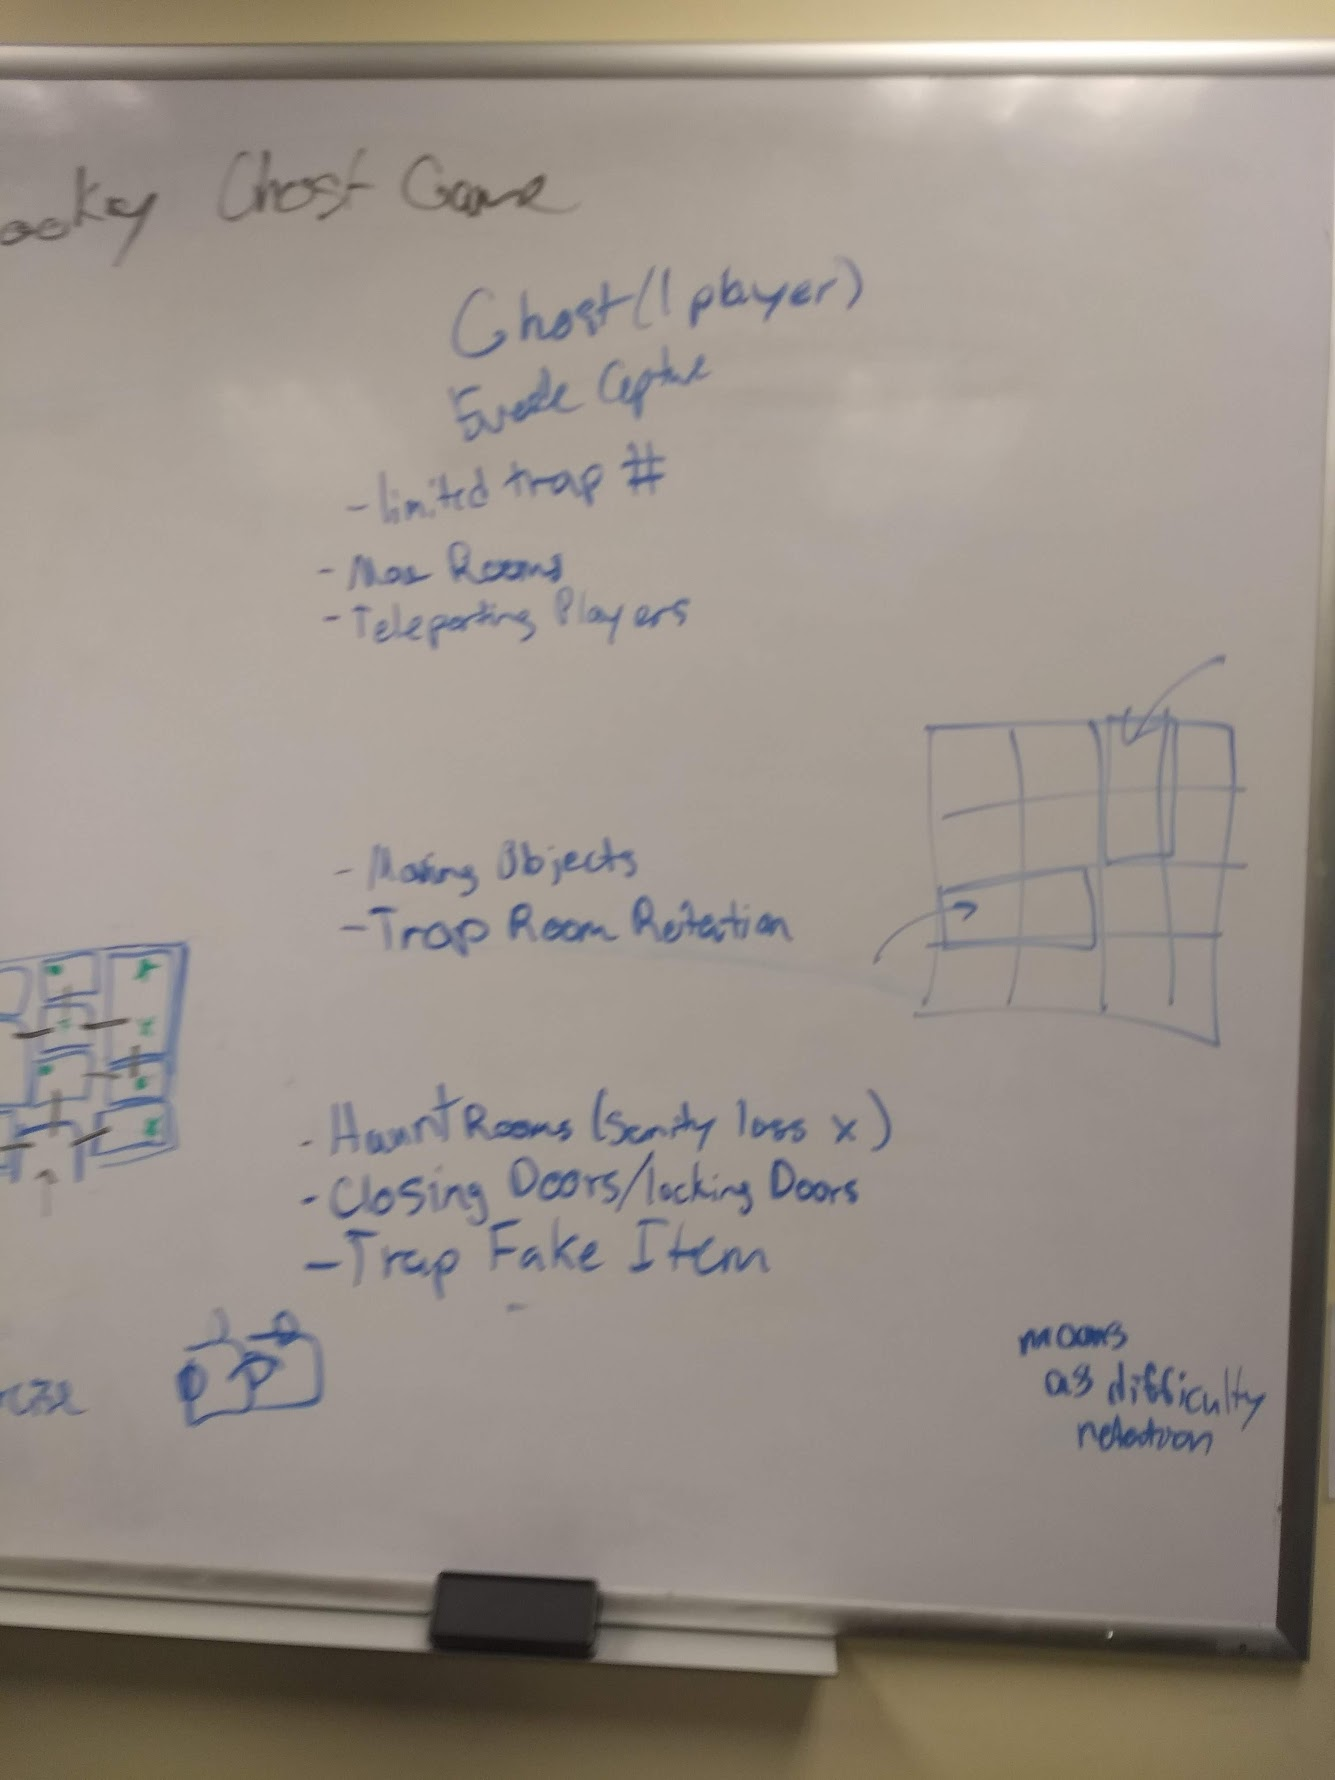 ooky Ghost Game
Ghost (1 player)
Evade Capture
- limited trap #
- Rooms
- Teleporting Players
- Moving Objects
- Trap Room
- Haunt Rooms (Sanity loss x)
- Closing Doors/locking Doors
- Trap Fake Item
P P
as difficulty